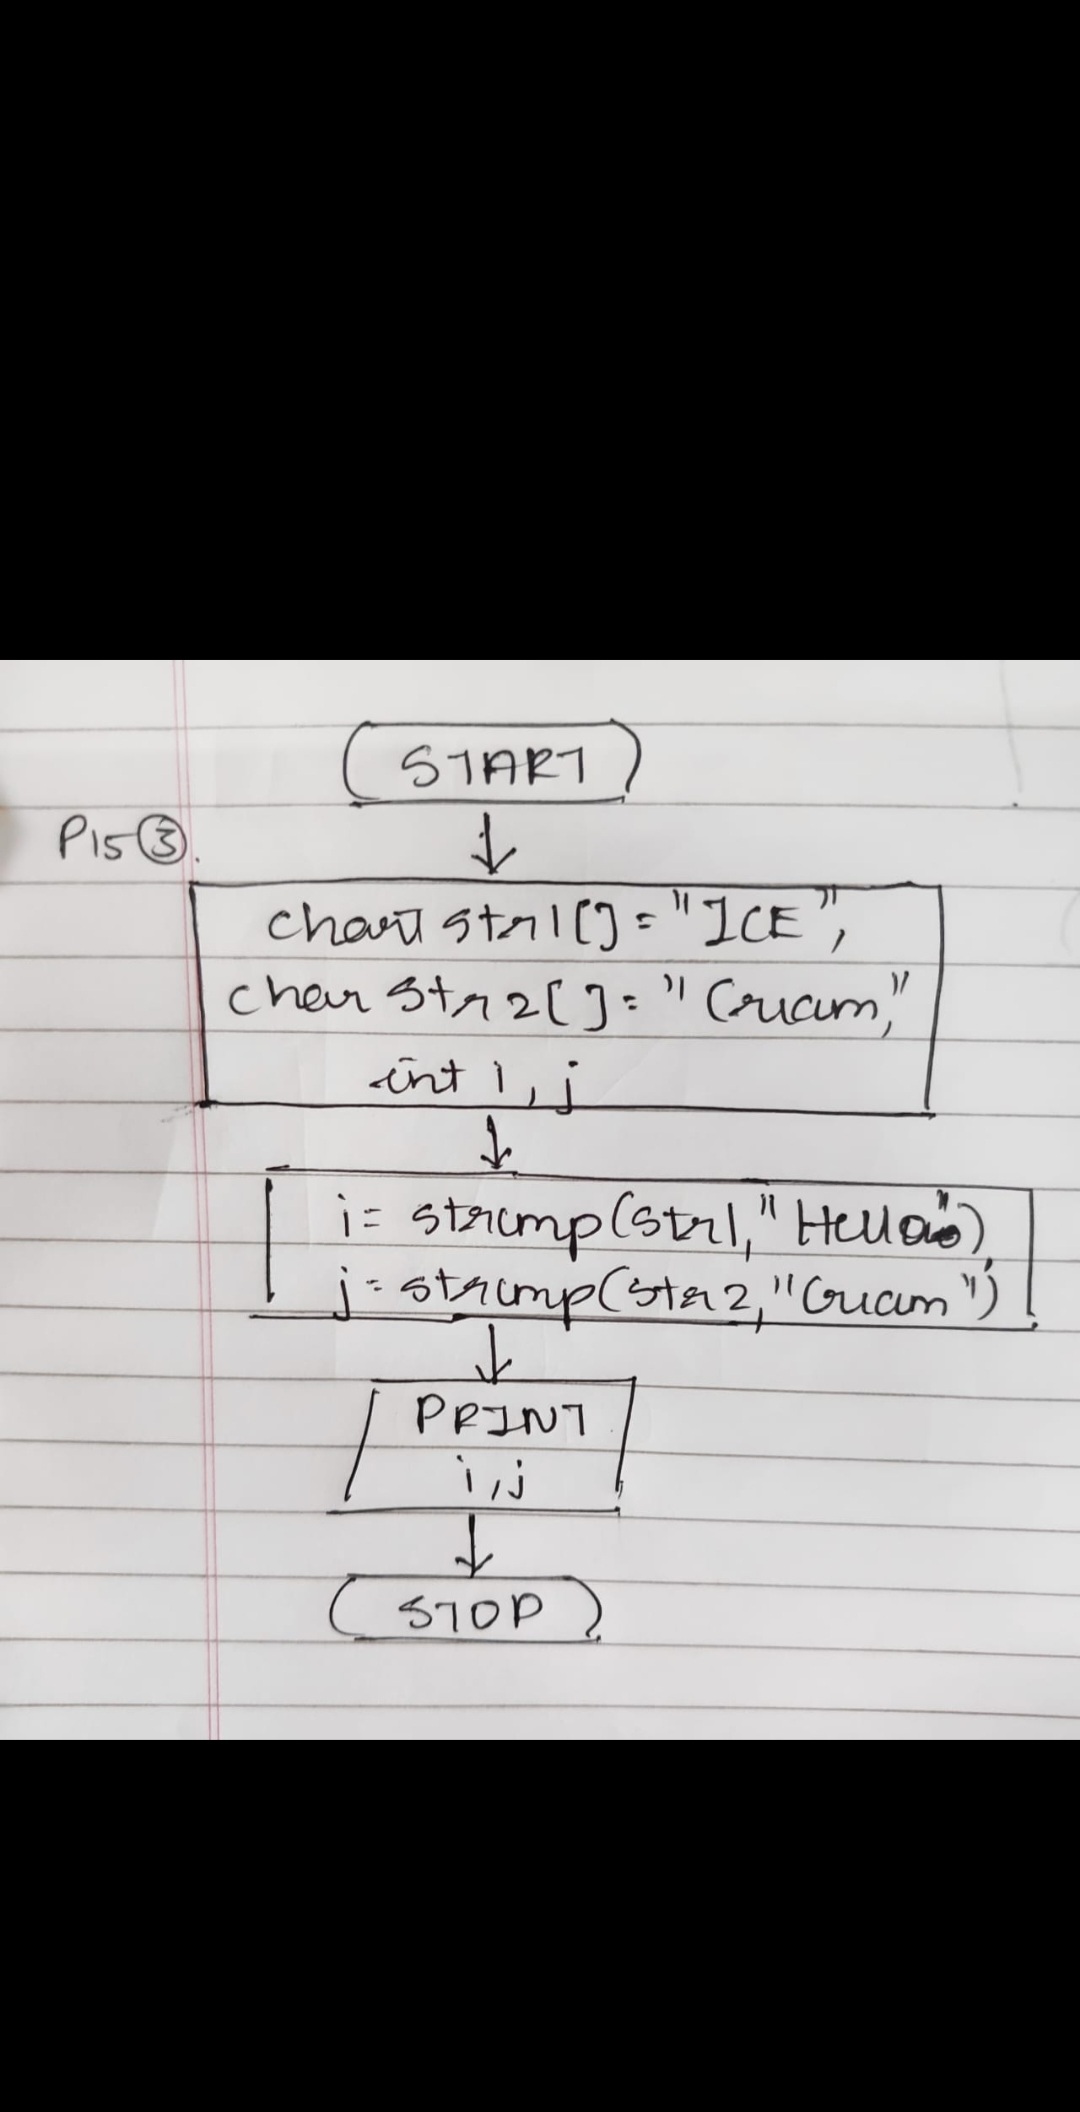 START
P15③.
char str1[]="ICE",
char str2[]="Cream,"
int i, j
i= strcmp(str1,"Hello"),
j=strcmp(str2,"Cream")
PRINT
i,j
STOP